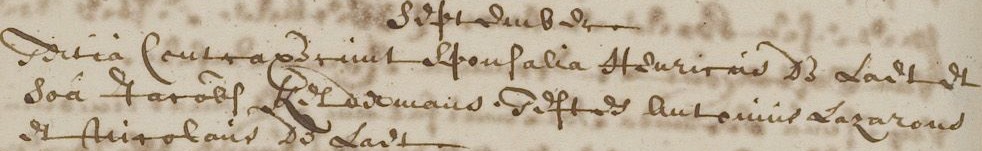 September
Tertia Contraxerunt sponsalia Henricus de Laet et
Joa Jacobs testes Antonius Lazarons
et Nicolaus de Laet